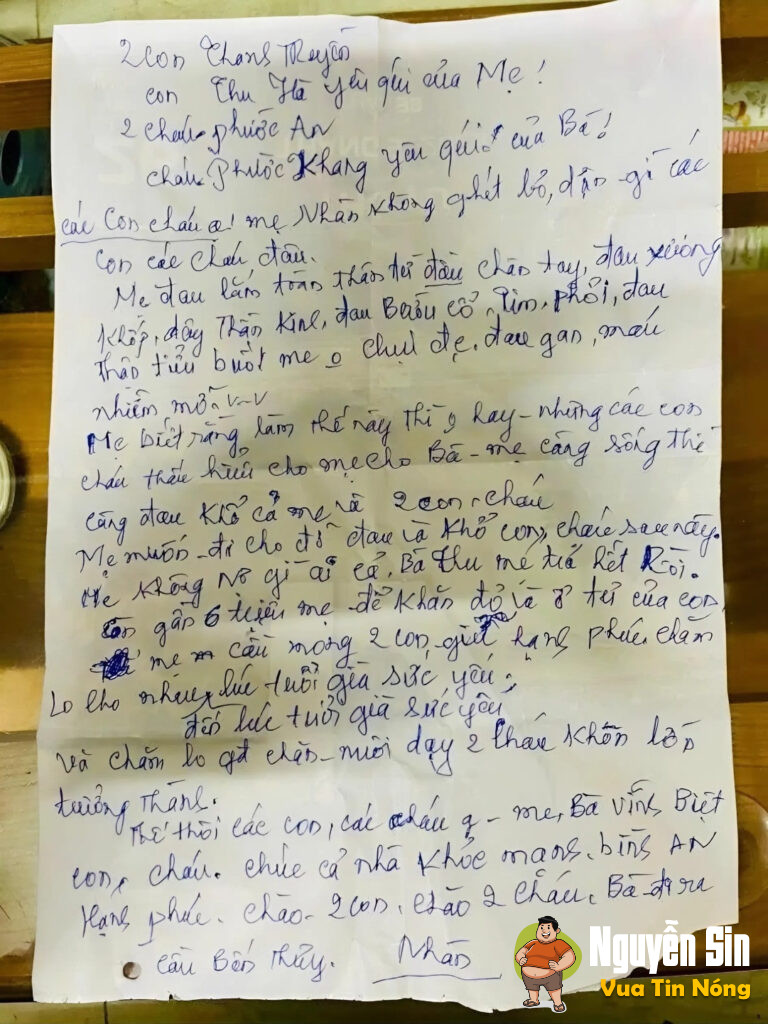 2 con Thanh Truyền
con Thu Hà yêu qúi của Mẹ!
2 cháu phước AN
cháu Phước Khang yêu qúi của Bà!
các con cháu ạ! mẹ Nhàn không ghét bỏ, dận gì các
con các cháu đâu.
Mẹ đau lắm toàn thân từ đầu chân tay, đau xương
khớp, dây Thần Kinh, đau Bướu cổ, Tim, phổi, đau
thận tiểu buốt mẹ o chịu đc. đau gan, máu
nhiễm mỡ v-v
Mẹ biết rằng làm thế này thì o hay - nhưng các con
cháu thấu hiểu cho mẹ cho Bà - mẹ càng sống thì
càng đau khổ cả mẹ và 2 con, cháu
Mẹ muốn đi cho đỡ đau và khổ con, cháu sau này.
Mẹ không nợ gì ai cả, Bà Thu mẹ trả hết Rồi.
còn gần 6 triệu mẹ để khăn đỏ và ở tủ của con,
mẹ cầu mong 2 con, giữ hạnh phúc chăm
lo cho nhau, lúc tuổi già sức yếu.
đến lúc tuổi già sức yếu
và chăm lo gđ chăn nuôi dạy 2 cháu khôn lớn
trưởng thành.
Thế thôi các con, các cháu ạ - mẹ, Bà vĩnh Biệt
con, cháu. chúc cả nhà khỏe mạnh, bình AN
Hạnh phúc. chào 2 con, chào 2 cháu. Bà đi ra
cầu Bến Thủy. Nhàn
Nguyễn Sin
Vua Tin Nóng